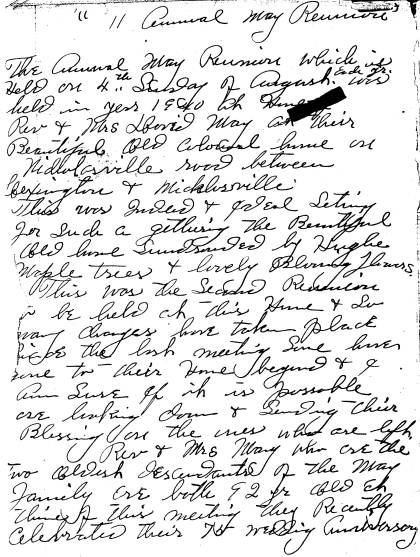 " " Annual May Reunion
The Annual May Reunion which is
Held on 4th Sunday of August. Each Yr. was
held in year 1940 at
Rev & Mrs David May at their
Beautiful Old Colonial home on
Nicholasville road between
Lexington & Nicholasville
This was Indeed & Ideal Seting
for such a gethering the Beautiful
Old home Surrounded by Hughe
Maple trees & lovely Blooming flowers
This was the Second Reunion
be held at this Home & So
many changes have taken place
the last meeting Some have
gone to their Home beyond & I
Am Sure If it is possible
are looking down & Sending their
Blessing on the ones who are left
Rev & Mrs May who are the
two Oldest descendants of the May
Family are both 92 yr old at
time of this meeting they Recently
Celebrated their 75 wedding Anniversary